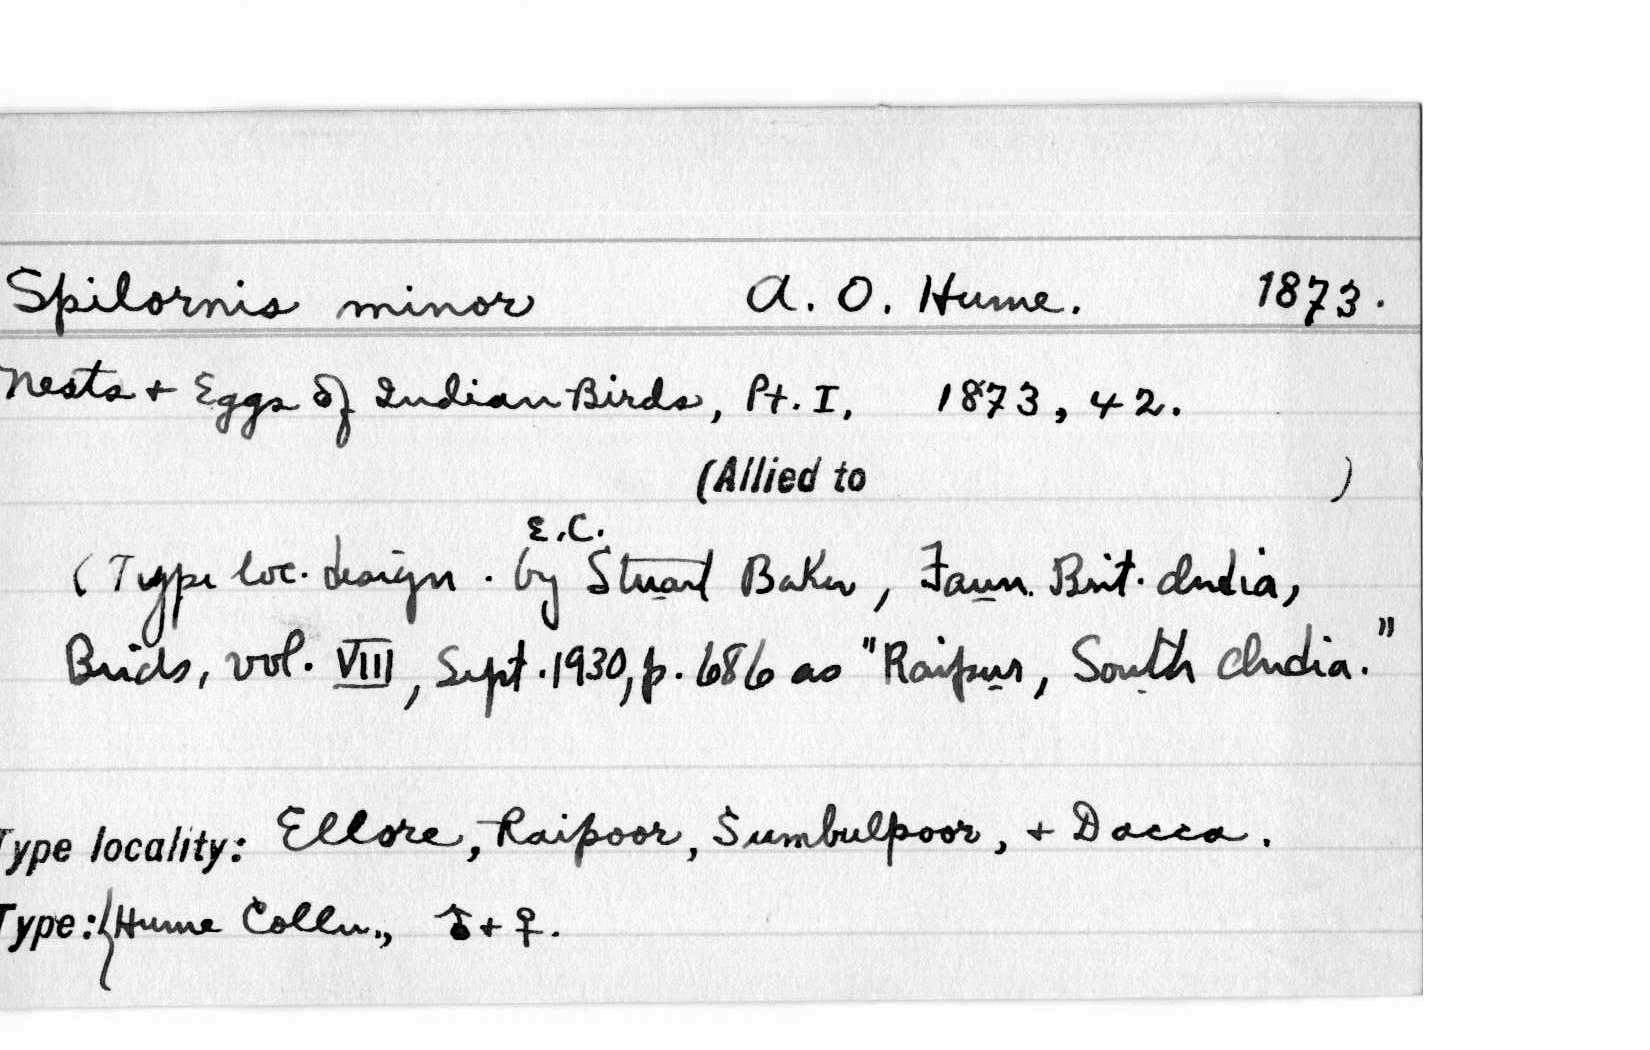 Spilornis minor A. O. Hume. 1873.
Nests + Eggs of Indian Birds, Pt. I, 1873, 42.
(Allied to )
E.C.
(Type loc. design. by Stuart Baker, Faun. Brit. India,
Birds, vol. VIII, Sept. 1930, p. 686 as "Raipur, South India."
Type locality: Ellore, Raipoor, Sumbulpoor, + Dacca.
Type: {Hume Colln., ♂ + ♀.